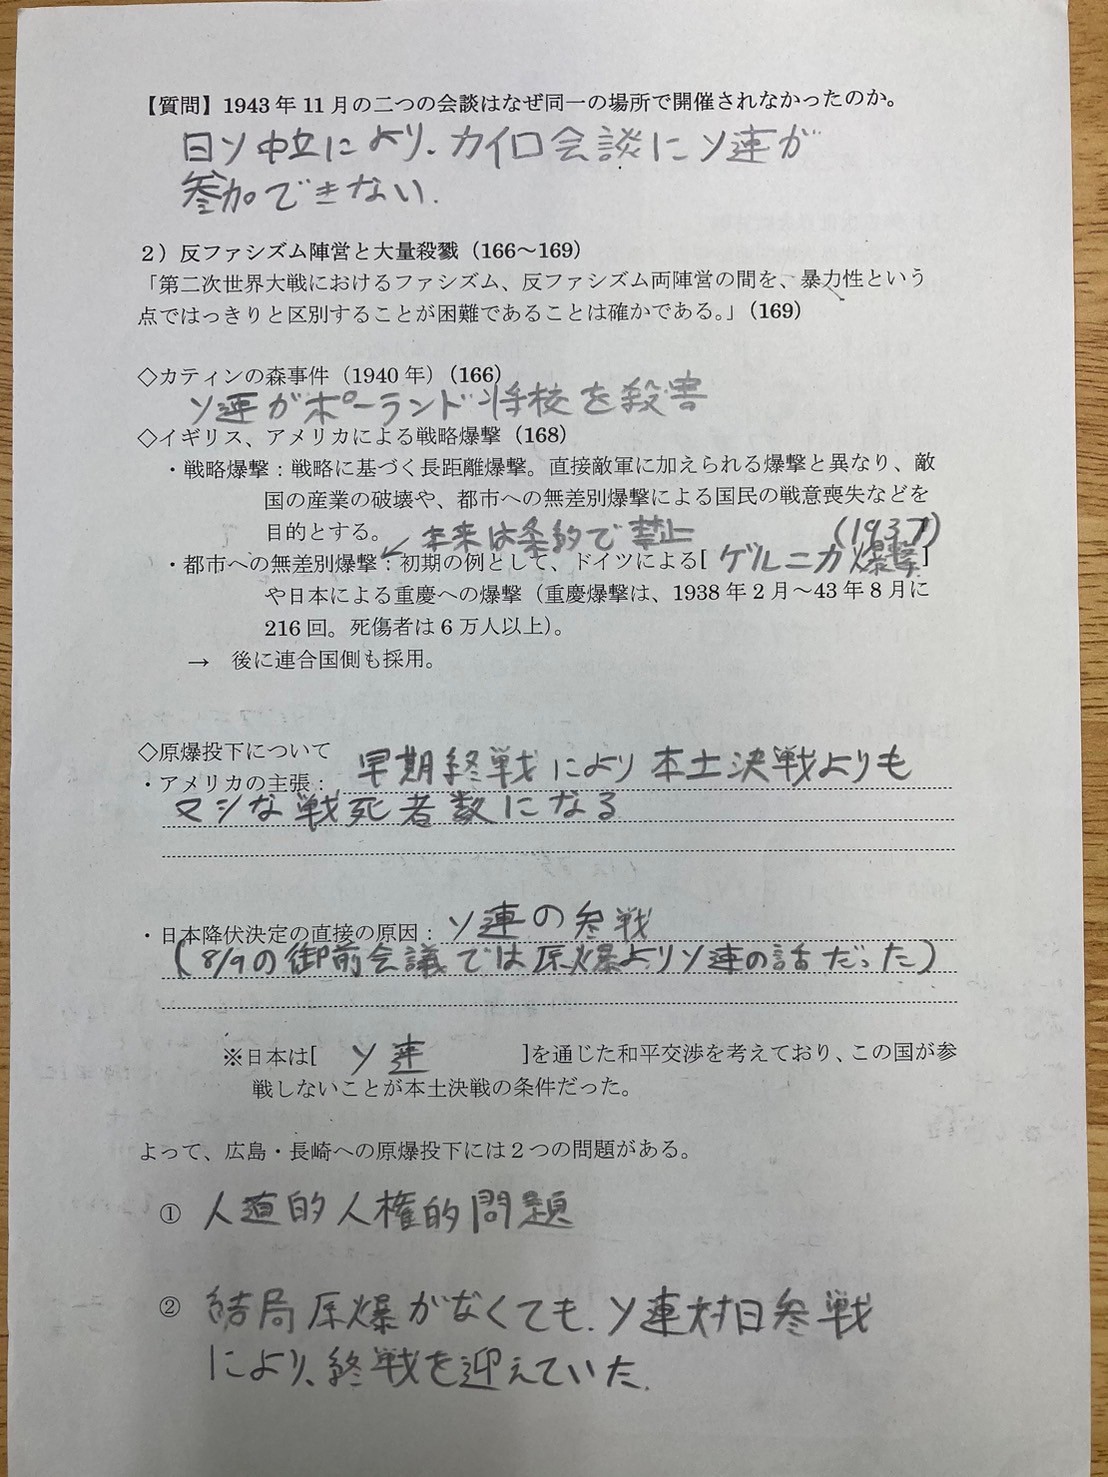 【質問】1943年11月の二つの会談はなぜ同一の場所で開催されなかったのか。
日ソ中立により、カイロ会談にソ連が
参加できない.
２）反ファシズム陣営と大量殺戮（166～169）
「第二次世界大戦におけるファシズム、反ファシズム両陣営の間を、暴力性という
点ではっきりと区別することが困難であることは確かである。」（169）
◇カティンの森事件（1940年）（166）
ソ連がポーランド将校を殺害
◇イギリス、アメリカによる戦略爆撃（168）
・戦略爆撃：戦略に基づく長距離爆撃。直接敵軍に加えられる爆撃と異なり、敵
国の産業の破壊や、都市への無差別爆撃による国民の戦意喪失などを
目的とする。 ↙ 本来は条約で禁止 (1937)
・都市への無差別爆撃：初期の例として、ドイツによる[ ゲルニカ爆撃 ]
や日本による重慶への爆撃（重慶爆撃は、1938年2月～43年8月に
216回。死傷者は6万人以上）。
→　後に連合国側も採用。
◇原爆投下について
・アメリカの主張： 早期終戦により本土決戦よりも
マシな戦死者数になる
・日本降伏決定の直接の原因： ソ連の参戦
(8/9の御前会議では原爆よりソ連の話だった)
※日本は[ ソ連 ]を通じた和平交渉を考えており、この国が参
戦しないことが本土決戦の条件だった。
よって、広島・長崎への原爆投下には２つの問題がある。
① 人道的人権的問題
② 結局原爆がなくても、ソ連対日参戦
により、終戦を迎えていた.